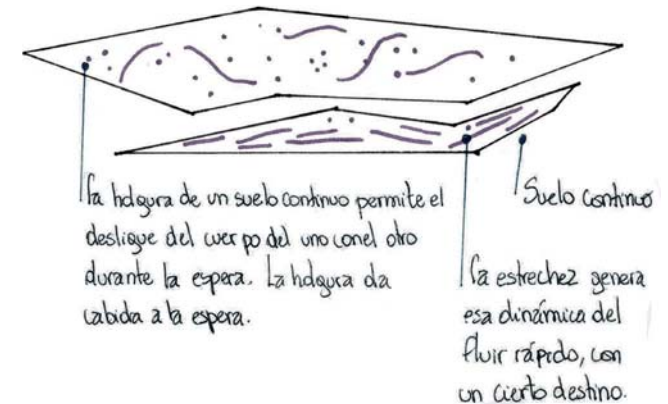 la holgura de un suelo continuo permite el
deslique del cuerpo del uno con el otro
durante la espera. La holgura da
cabida a la espera.
Suelo continuo
la estrechez genera
esa dinámica del
fluir rápido, con
un cierto destino.